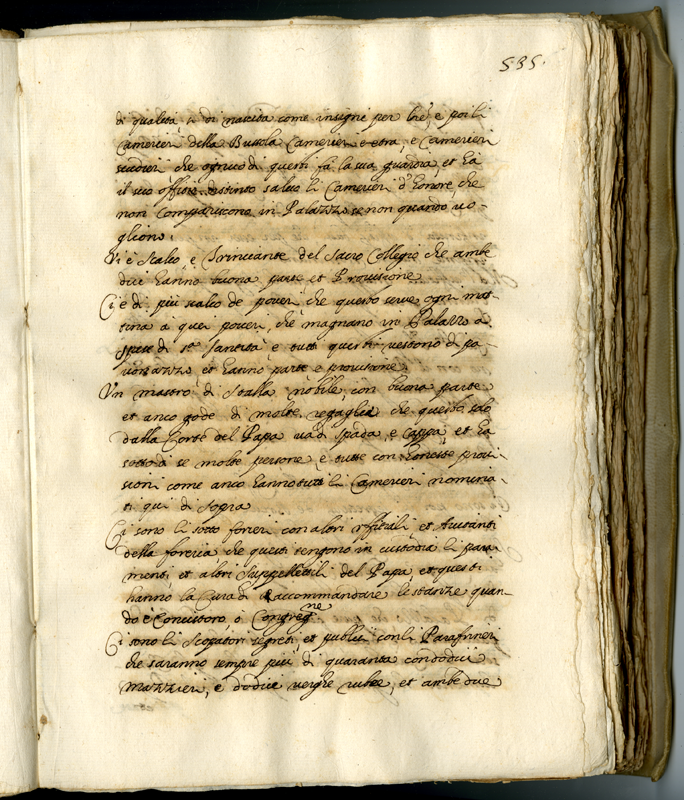 535.
di qualità, ò di nascita come insigni per lre, e poi li
Camerieri della Bussola Camerieri extra, e Camerieri
scudieri che ogniuo di questi fà la sua guardia, et hà
il suo offitio distinto salvo li Camerieri d'honore, che
non Compariscono in Palazzo se non quando vo-
gliono.
Vi è Scalco, e Trinciante del Sacro Collegio che ambe
dui hanno buona parte et Provisione
Ci è di più scalco de poveri che questo serve ogni mat-
tina a quei poveri, che magnano in Palazzo a
spese di sa. Santità e tutti questi vestono di pa-
vonazzo et hanno parte e provisione
Un mastro di Stalla nobile, con buona parte
et anco gode di molte regaglie che questo solo
dalla Corte del Papa và di spada, e Cappa, et hà
sotto di se molte persone e tutte con honeste provi-
sioni come anco hanno tutti li Camerieri nomina-
ti qui di sopra
Ci sono li sotto forieri con altri offitiali et Aiutanti
della foreria che questi tengono in custodia li para
menti, et altri Suppellettili del Papa, et questi
hanno la Cura di Raccommandare le stanze quan-
do è Concistoro, ò Congregne
Ci sono li Scopatori segreti, et publici con li Parafrineri
che saranno sempre più di quaranta con dodici
mazzieri, e dodici verghe rubee, et ambe due